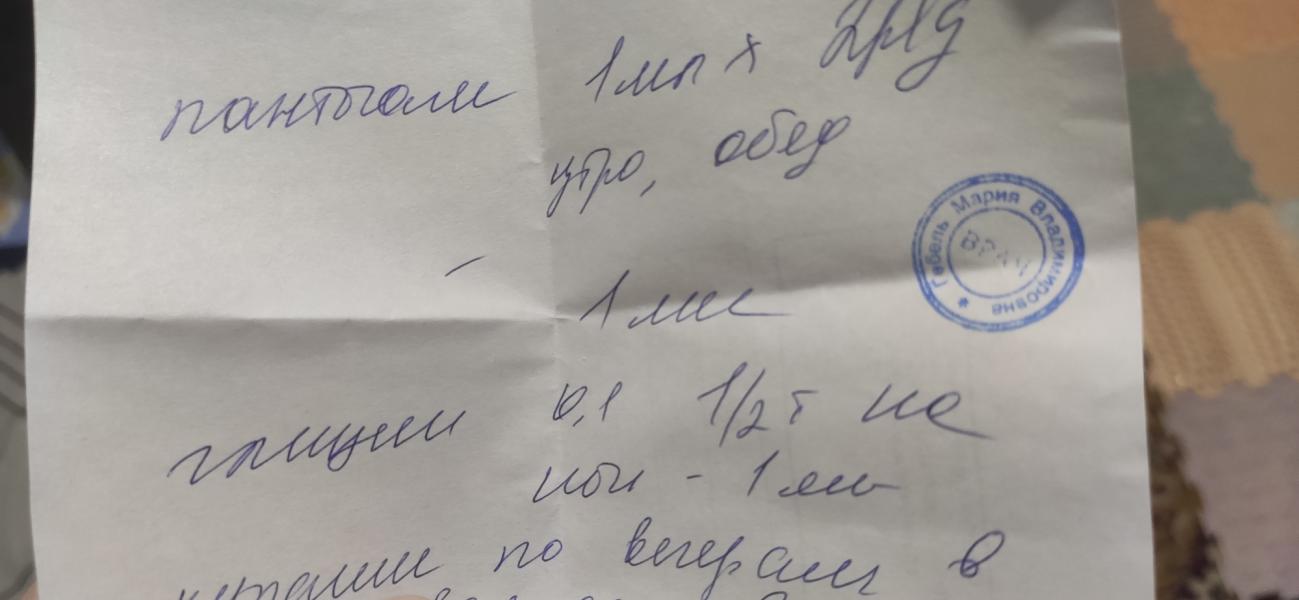 пантогам 1 мл х 2р/д
утро, обед
- 1 мес
глицин 0,1 1/2 т на
ночь - 1 мес
купание по вечерам в
Гебель Мария Владимировна *
ВРАЧ